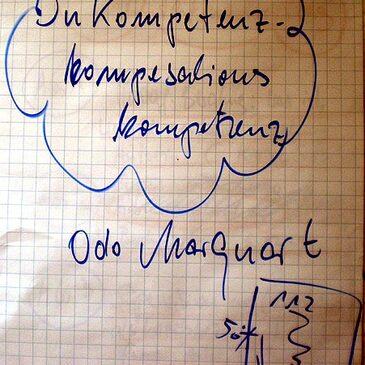 InKompetenz-
kompesations
kompetenz
Odo Marquart
112
50%